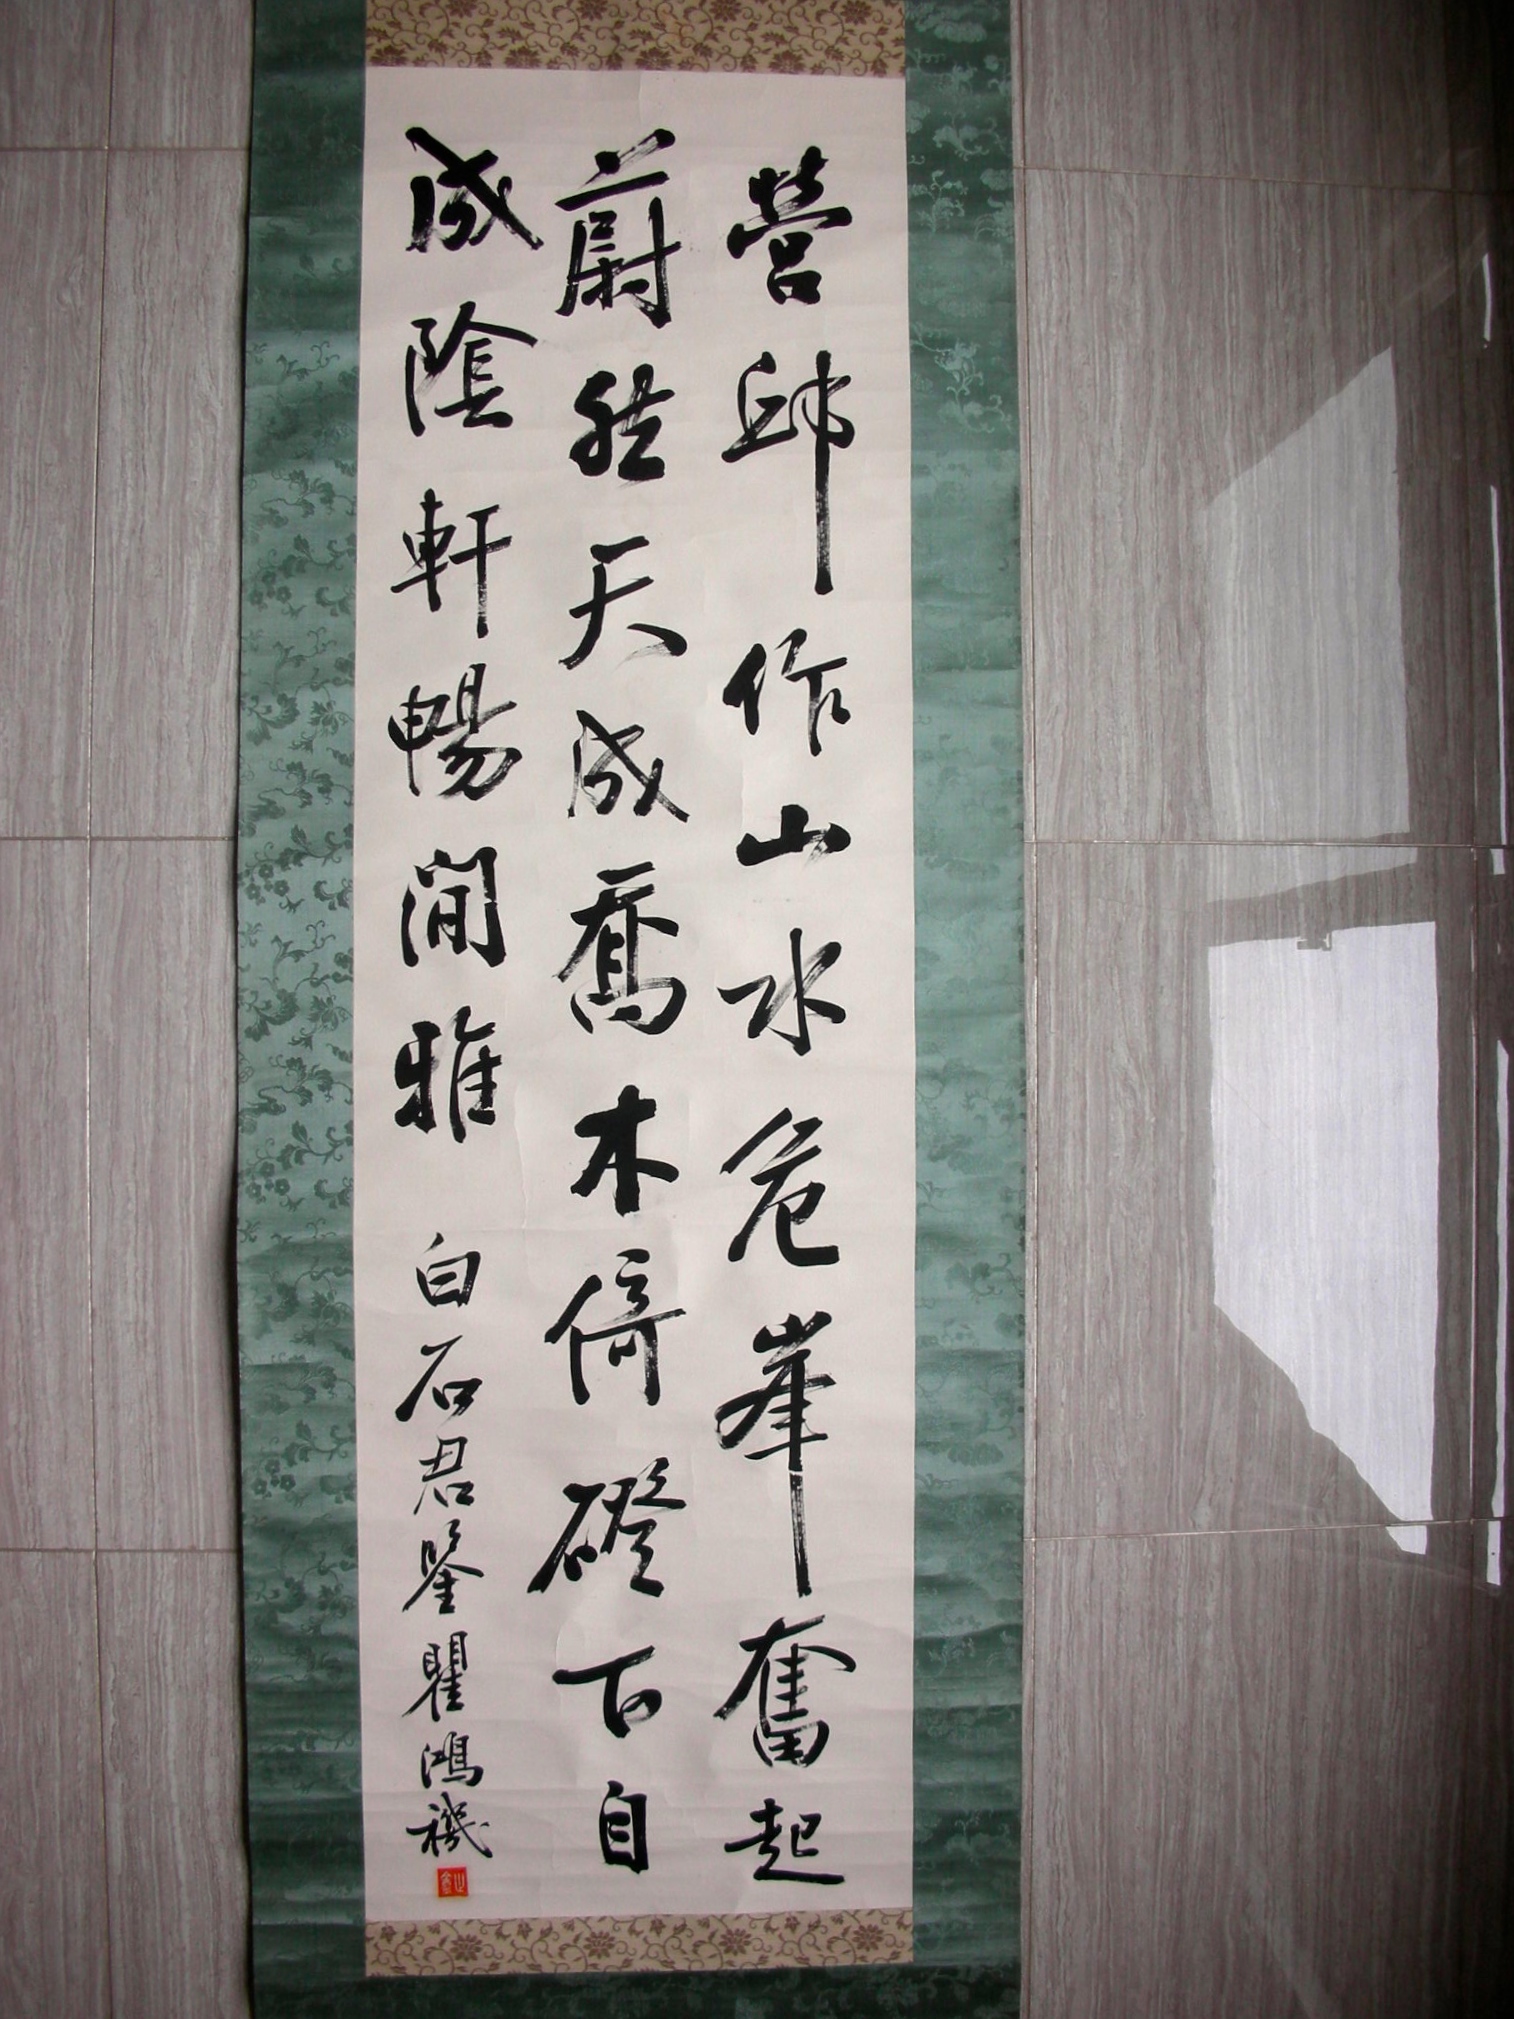 營邱作山水危峯奮起
蔚然天成喬木倚磴下自
成陰軒暢閒雅
白石君鑒瞿鴻禨